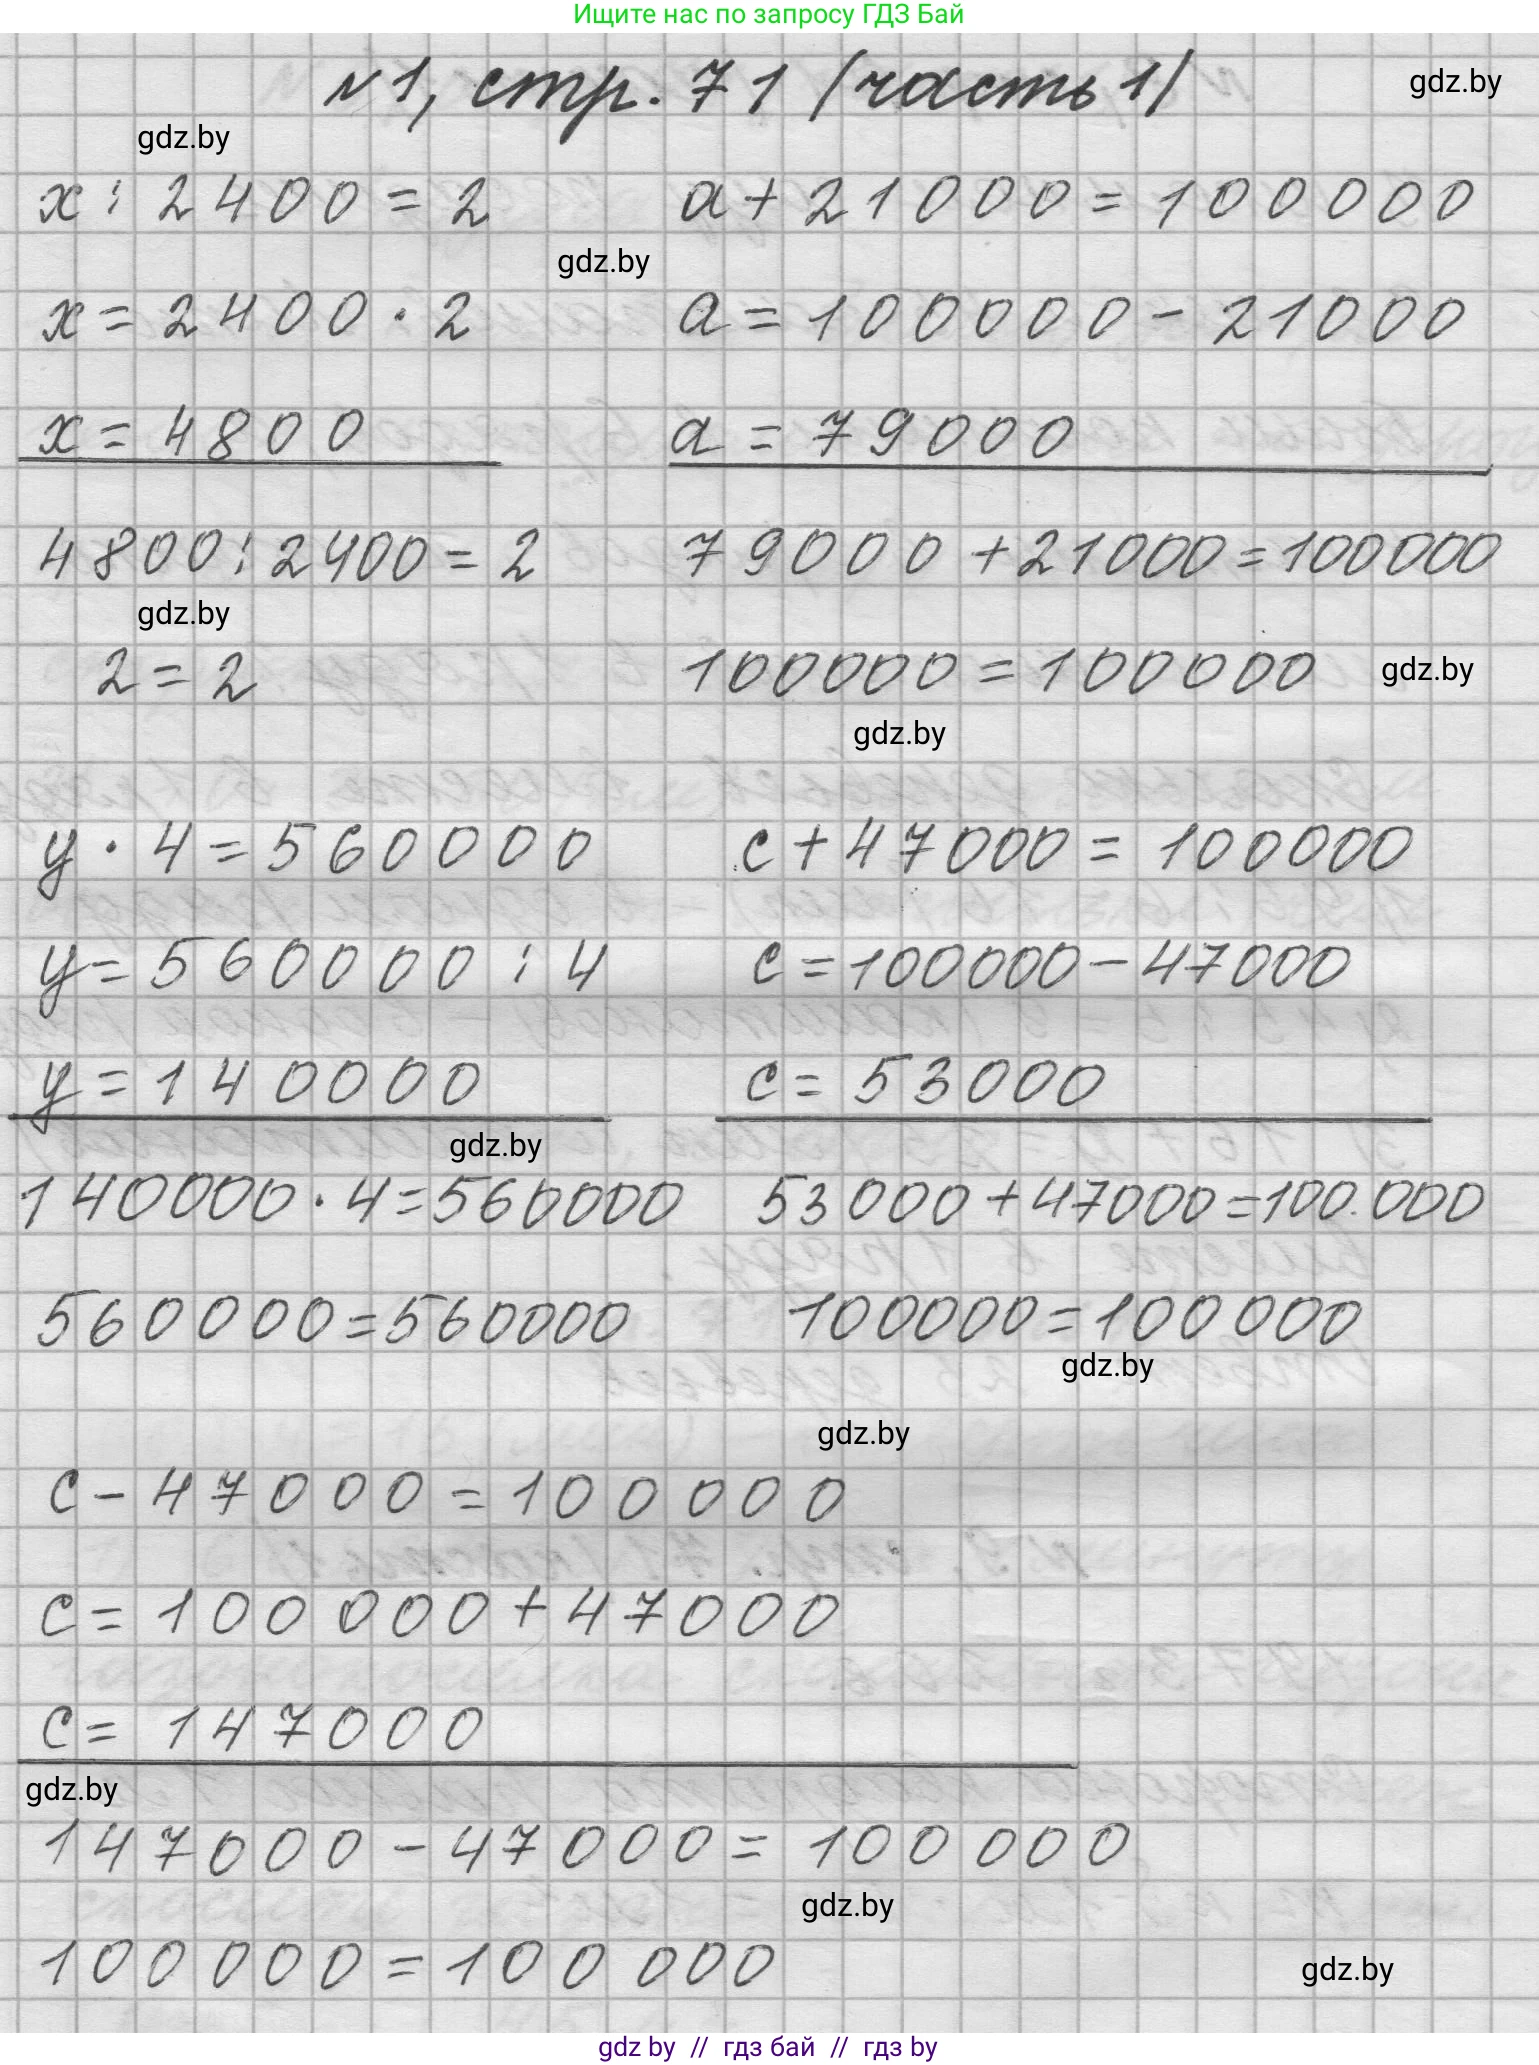 Ищите нас по запросу ГДЗ Бай
№1, стр. 71 (часть 1)
gdz.by
gdz.by
x : 2400 = 2
a + 21000 = 100000
gdz.by
x = 2400 · 2
a = 100000 - 21000
x = 4800
a = 79000
4800 : 2400 = 2
79000 + 21000 = 100000
gdz.by
2 = 2
100000 = 100000
gdz.by
gdz.by
y · 4 = 560000
c + 47000 = 100000
y = 560000 : 4
c = 100000 - 47000
y = 140000
c = 53000
gdz.by
140000 · 4 = 560000
53000 + 47000 = 100.000
560000 = 560000
100000 = 100000
gdz.by
gdz.by
c - 47000 = 100000
c = 100000 + 47000
c = 147000
gdz.by
147000 - 47000 = 100000
gdz.by
100000 = 100000
gdz.by
gdz by // гдз бай // гдз by